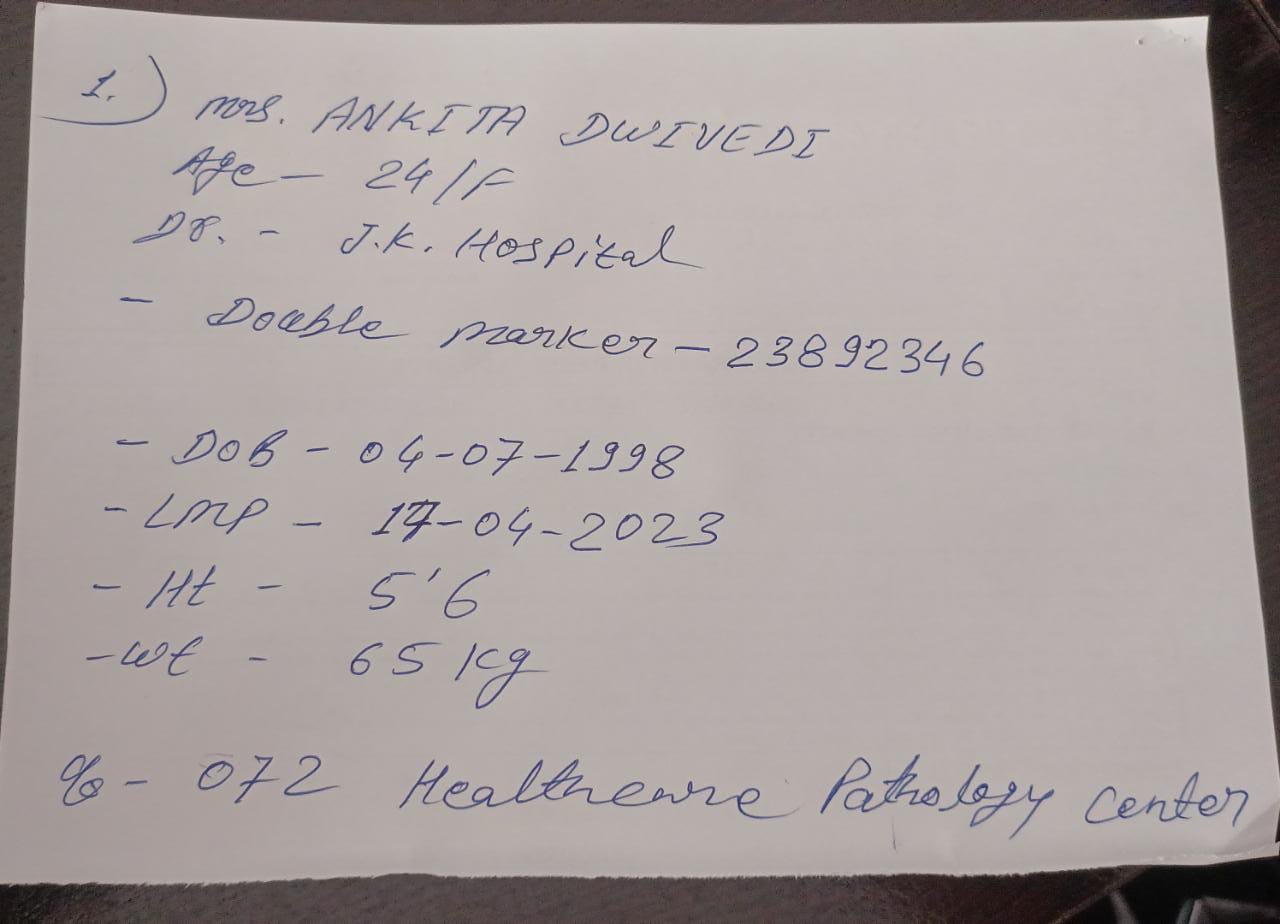 1.) Mrs. ANKITA DWIVEDI
Age - 24/F
Dr. - J.K. Hospital
- Double marker - 23892346
- DOB - 04-07-1998
- LMP - 17-04-2023
- Ht - 5'6
- wt - 65 kg
% - 072 Healthcare Pathology Center